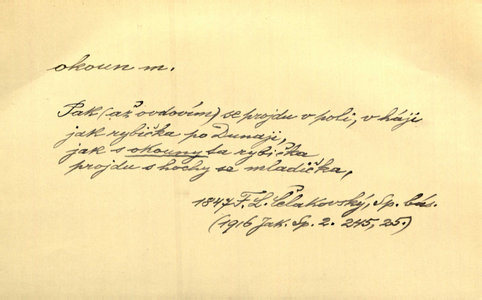 okoun m.
Pak (až ovdovím) se projdu v poli, v háji
jak rybička po Dunaji,
jak s okouny ta rybička
projdu s hochy se mladička,
1847 F. L. Čelakovský, Sp. bás.
(1916 Jak. Sp. 2. 245, 25.)